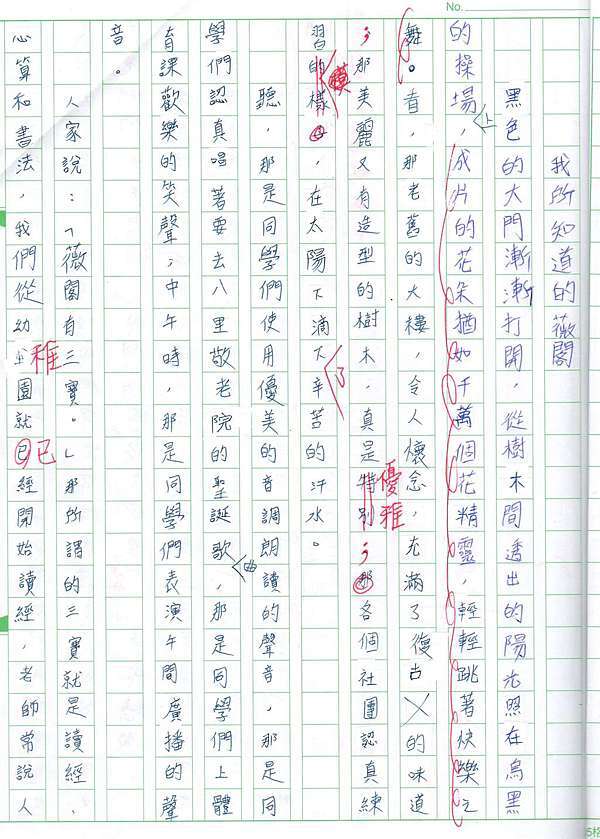 No.
我所知道的薇閣
黑色的大門漸漸打開，從樹木間透出的陽光照在烏黑
的操場，上成片的花朵猶如千萬個花精靈，輕輕跳著快樂之
舞。看，那老舊的大樓，令人懷念，充滿了復古的味道
；那美麗又有造型的樹木，真是特別優雅；那各個社團認真練
習的樣模，在太陽下滴下了辛苦的汗水。
聽，那是同學們使用優美的音調朗讀的聲音，那是同
學們認真唱著要去八里敬老院的聖誕歌曲，那是同學們上體
育課歡樂的笑聲；中午時，那是同學們表演午間廣播的聲
音。
人家說：「薇閣有三寶。」那所謂的三寶就是讀經、
心算和書法，我們從幼稚園就已已經開始讀經，老師常說人